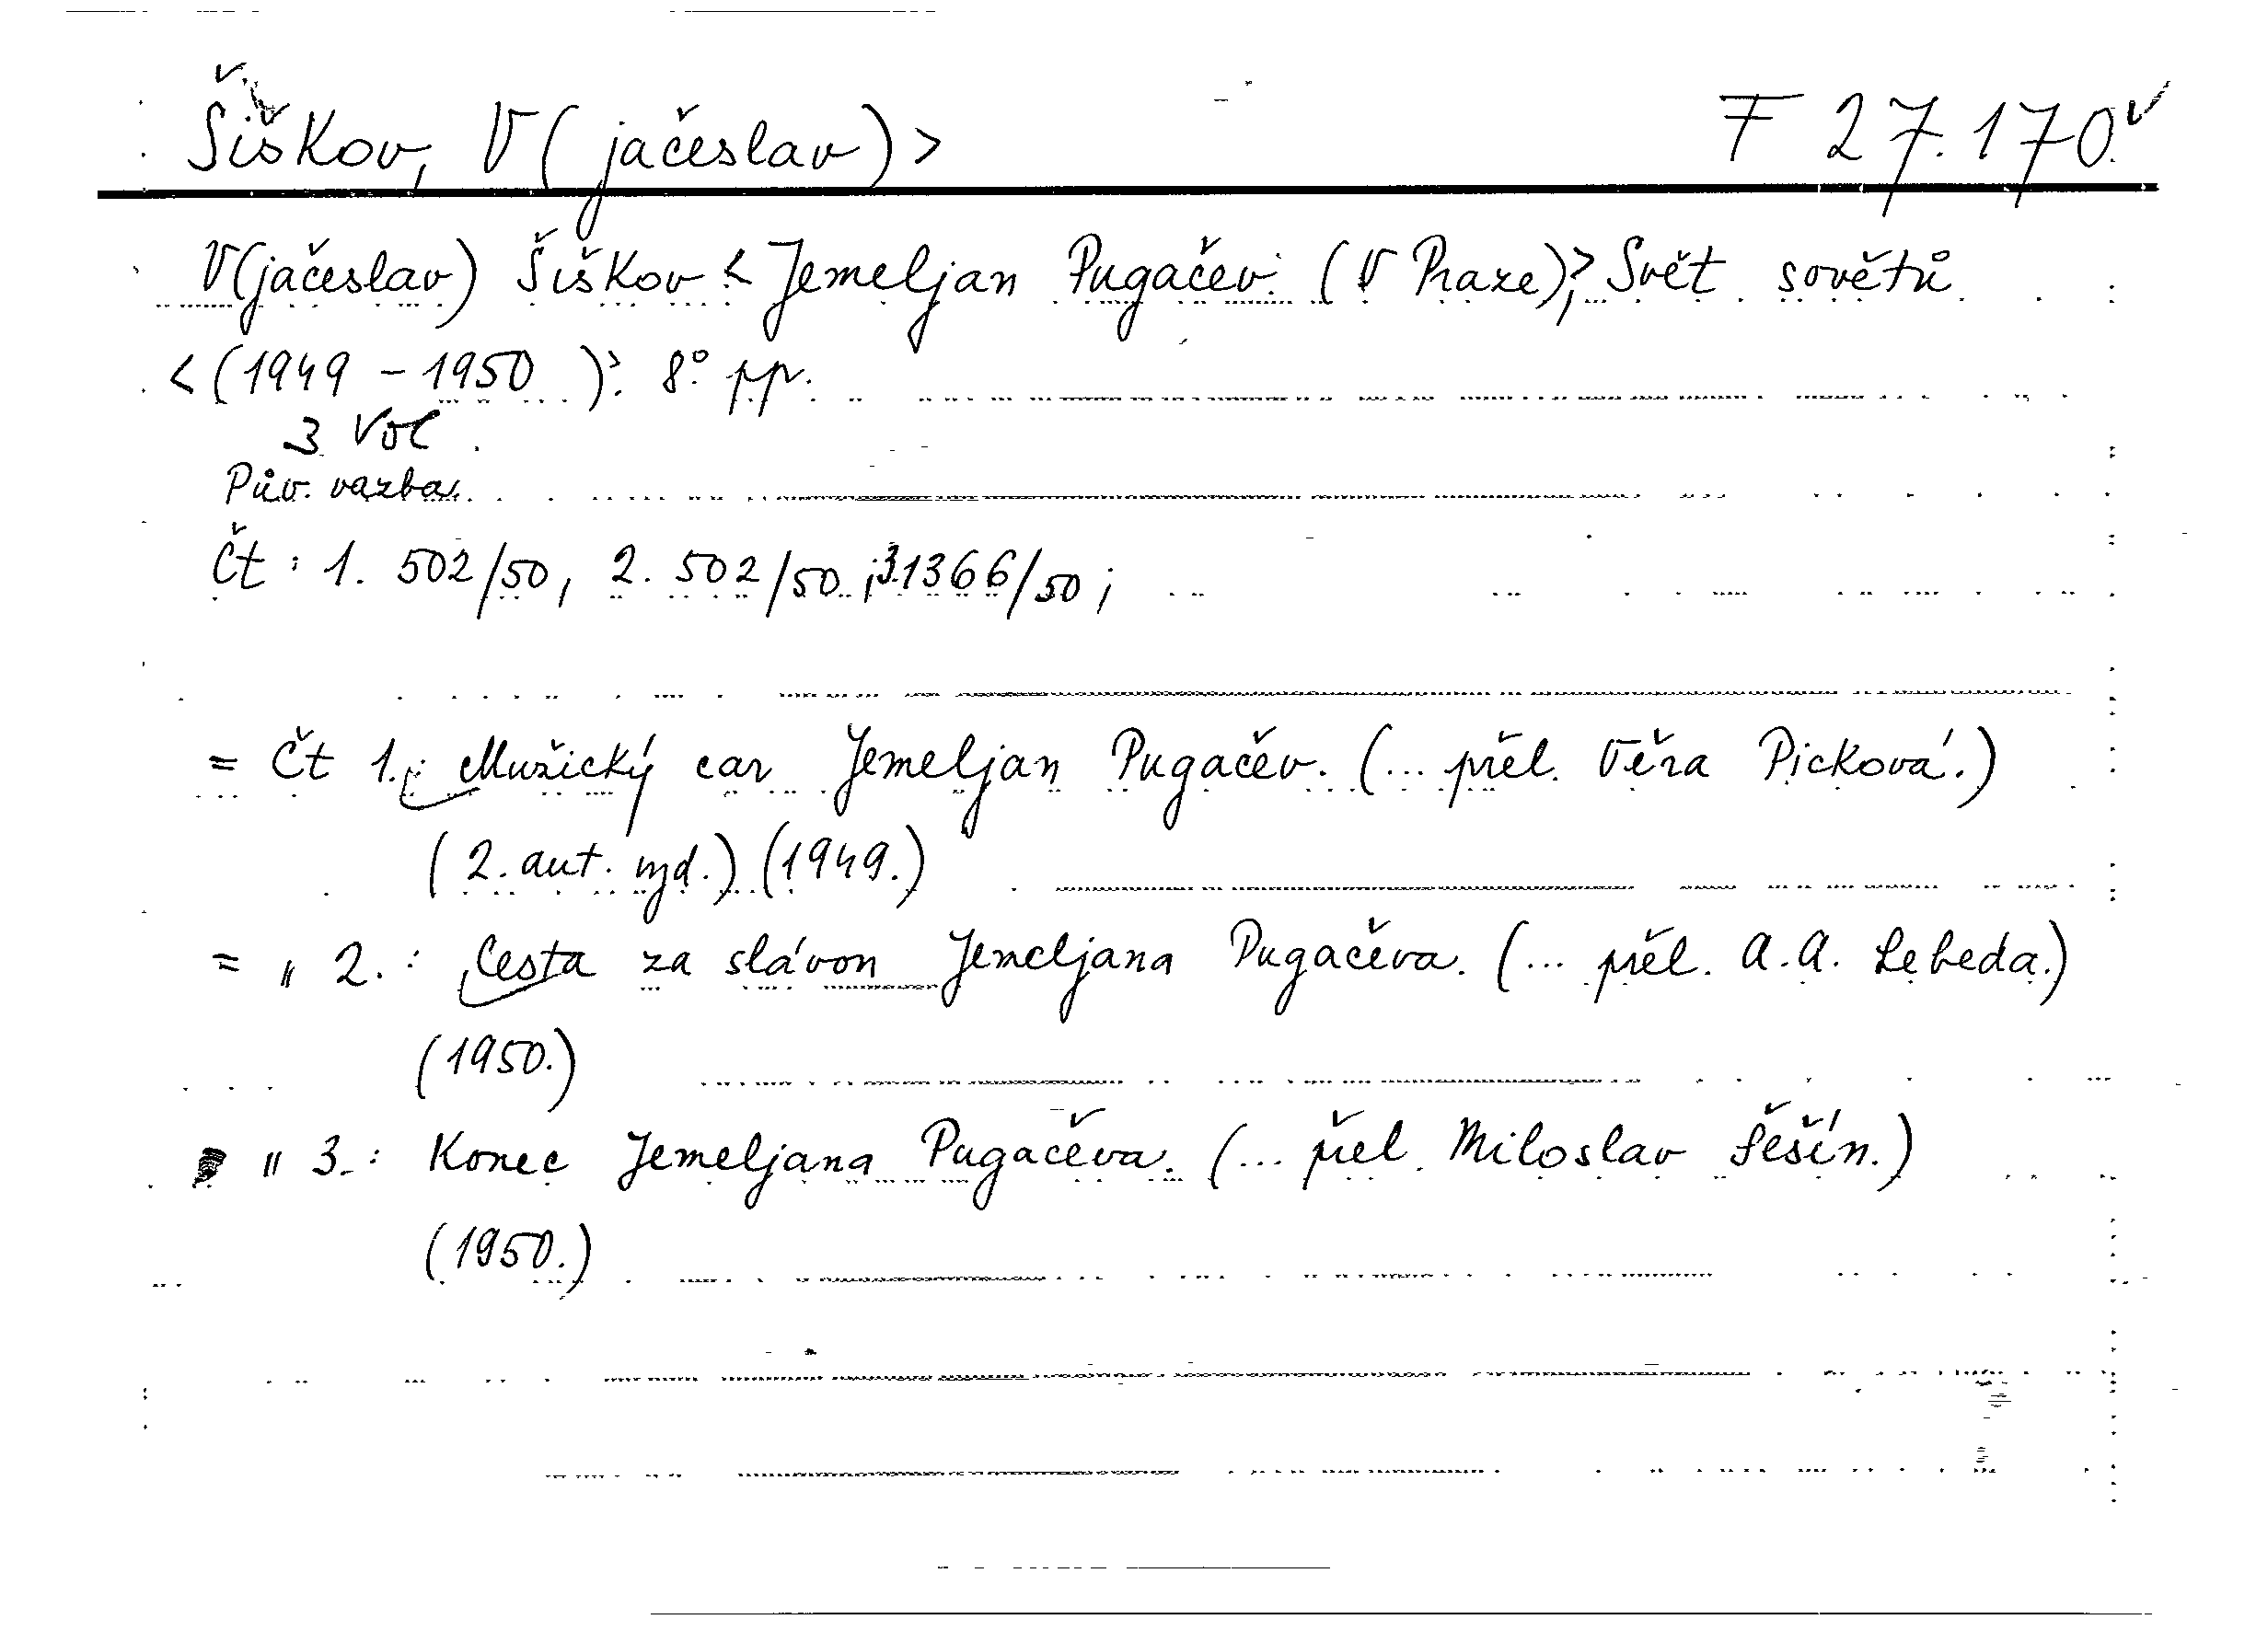 Šiškov, V(jačeslav)> F 27.170.
V(jačeslav) Šiškov < Jemeljan Pugačev. (V Praze)>, Svět sovětů
<(1949 - 1950 )>. 8° pp.
3 Vol.
Pův. vazba.
Čt: 1. 502/50, 2. 502/50; 3.1366/50;
= Čt 1.: Mužický car Jemeljan Pugačev. (... přel. Věra Picková.)
(2. aut. vyd.) (1949.)
= " 2.: Cesta za slávou Jemeljana Pugačeva. (... přel. A.A. Lebeda.)
(1950.)
" 3.: Konec Jemeljana Pugačeva. (... přel. Miloslav Šešín.)
(1950.)